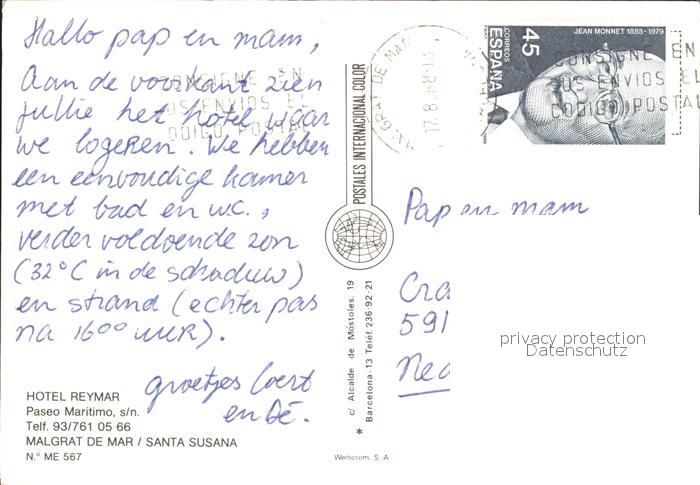 Hallo pap en mam,
Aan de voorkant zien
jullie het hotel waar
we logeren. We hebben
een eenvoudige kamer
met bad en w.c.,
verder voldoende zon
(32°C in de schaduw)
en strand (echter pas
na 16⁰⁰ uur).
groetjes Coert
en Dé.
HOTEL REYMAR
Paseo Marítimo, s/n.
Telf. 93/761 05 66
MALGRAT DE MAR / SANTA SUSANA
N.° ME 567
POSTALES INTERNACIONAL COLOR
c/ Alcalde de Móstoles, 19
Barcelona-13 Teléf. 236-92-21
Werticrom, S. A
JEAN MONNET 1888-1979
45
CORREOS
ESPAÑA
GRAT DE MAR
17.8.
CONSIGNE EN
SUS ENVIOS EL
CODIGO POSTAL
CONSIGNE EN
SUS ENVIOS EL
CODIGO POSTAL
Pap en mam
Cra
591
Ned
privacy protection
Datenschutz